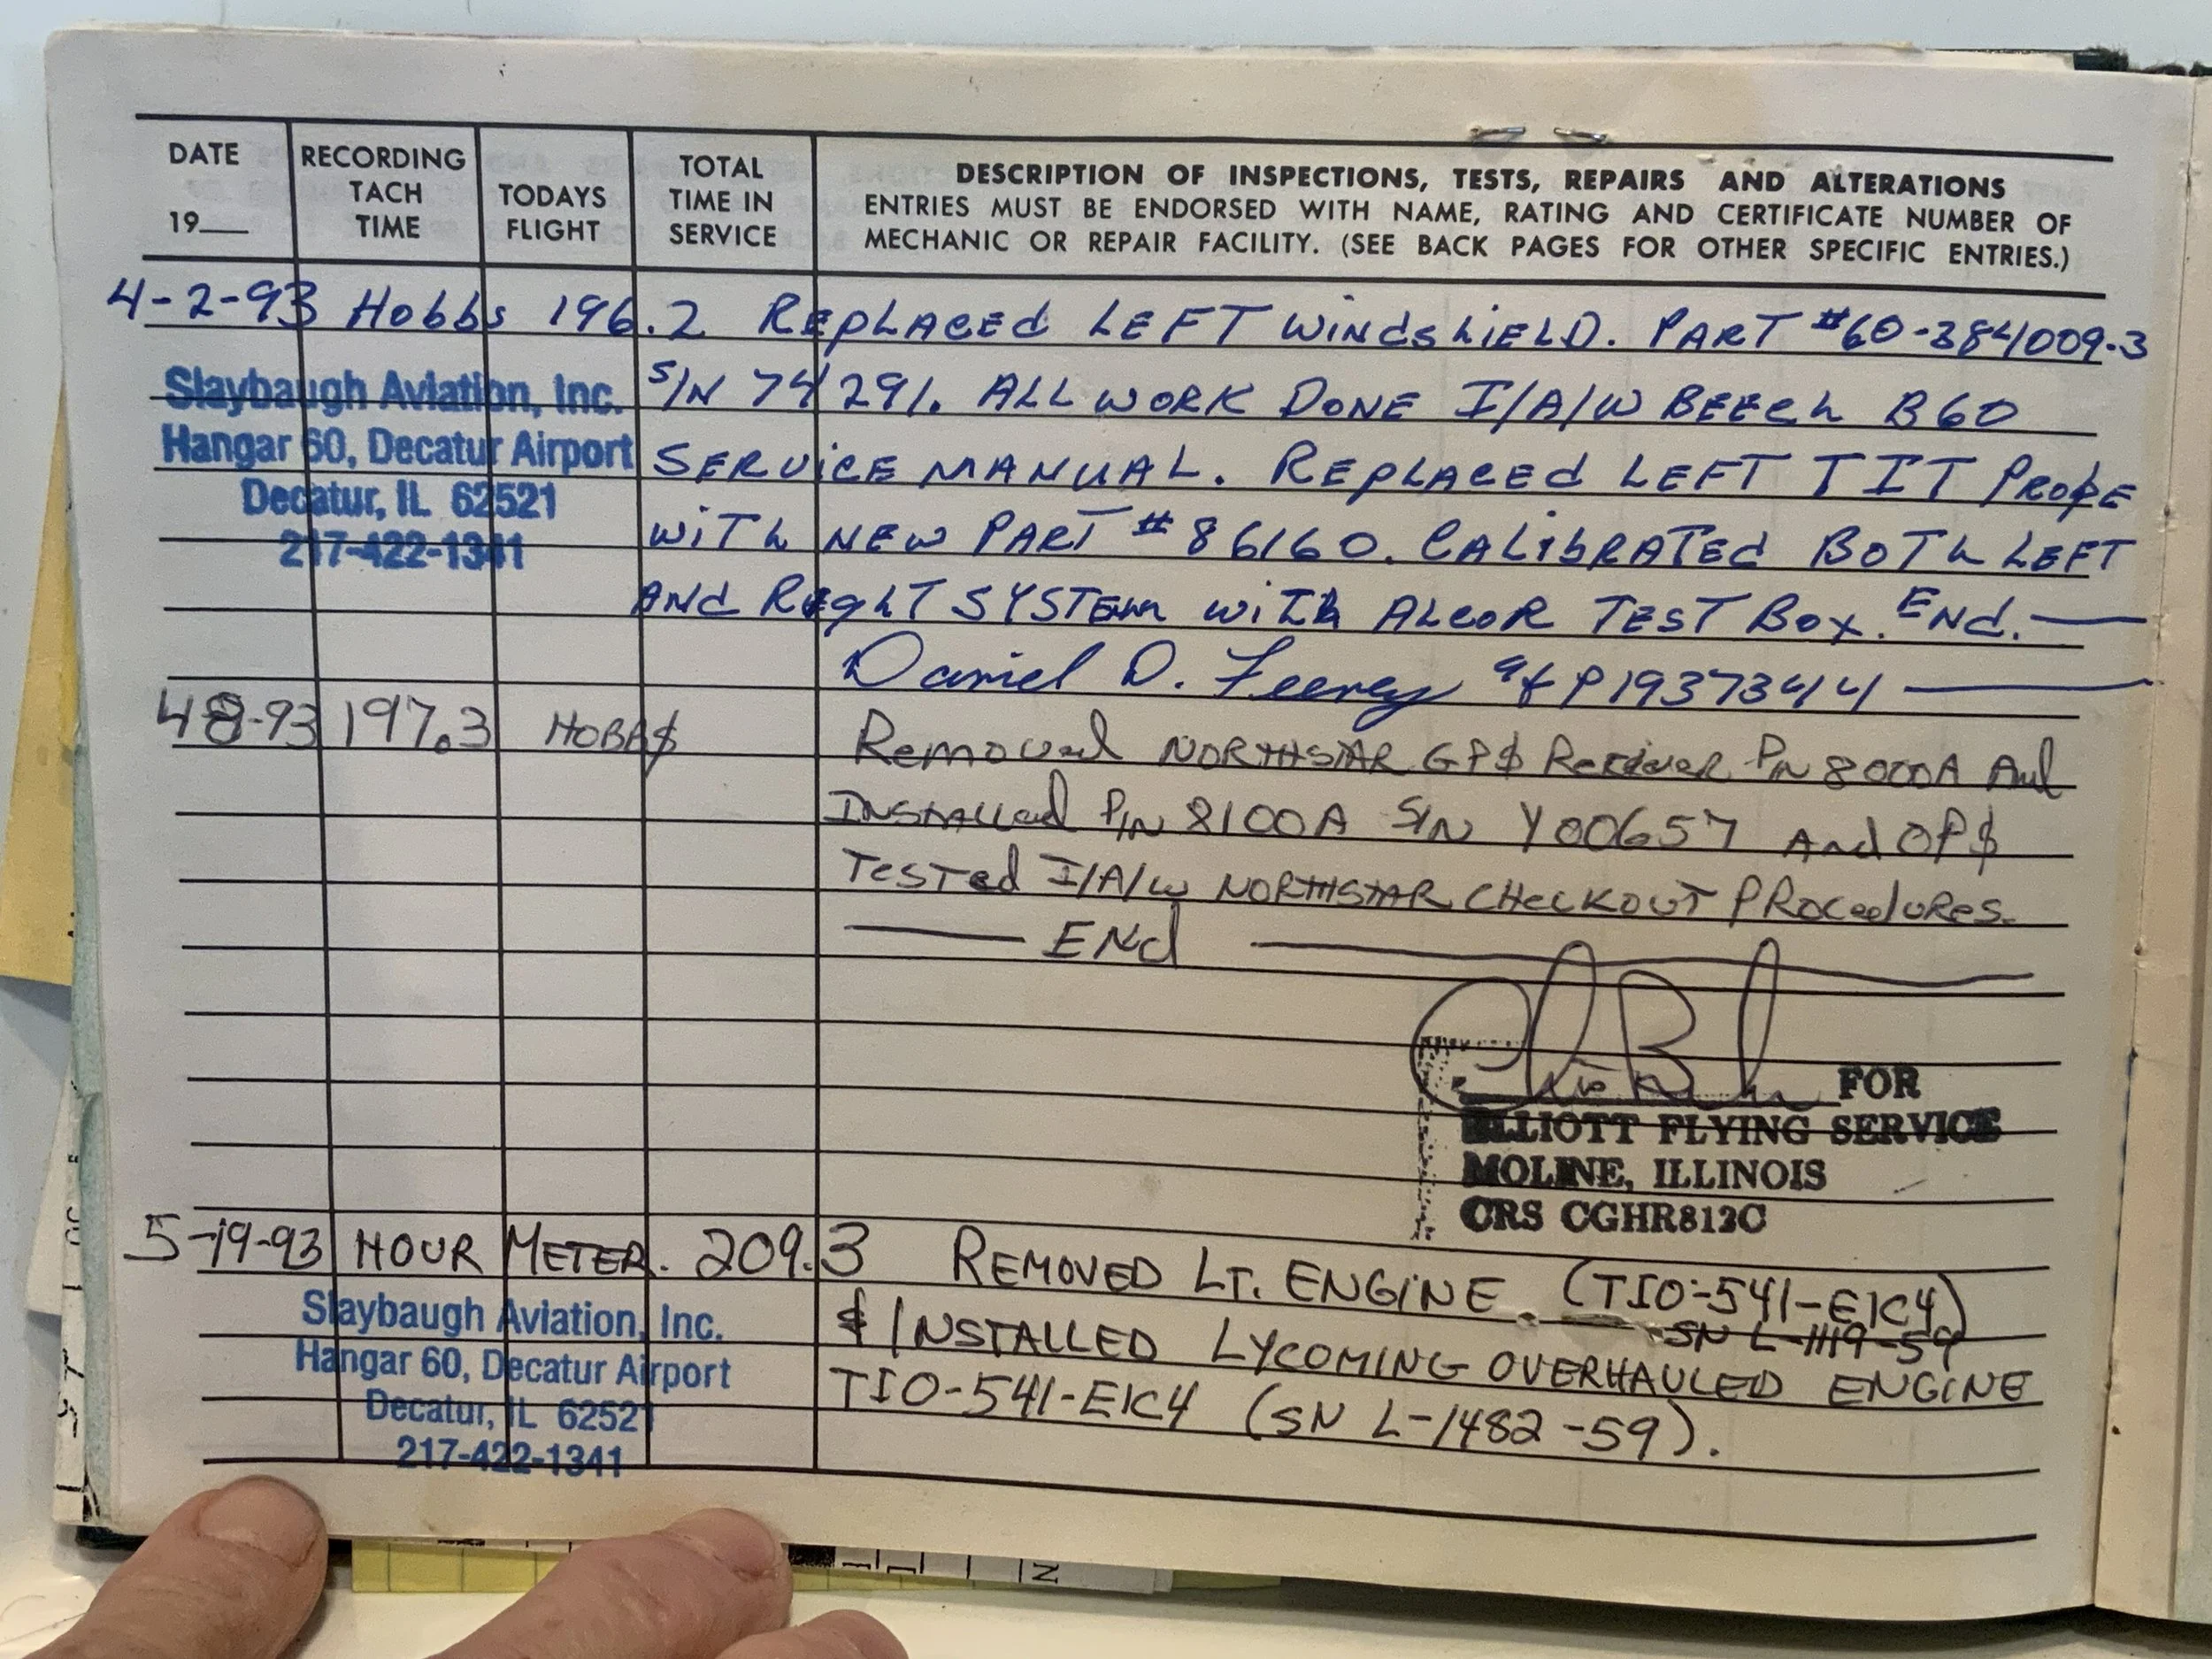 DATE
19
RECORDING
TACH
TIME
TODAYS
FLIGHT
TOTAL
TIME IN
SERVICE
DESCRIPTION OF INSPECTIONS, TESTS, REPAIRS AND ALTERATIONS
ENTRIES MUST BE ENDORSED WITH NAME, RATING AND CERTIFICATE NUMBER OF
MECHANIC OR REPAIR FACILITY. (SEE BACK PAGES FOR OTHER SPECIFIC ENTRIES.)
4-2-93 Hobbs 196.2 REPLACEd LEFT WindshiELD. PART #60-384009-3
S/N 74291. ALL WORK DONE I/A/W BEECh B60
SERViCE MANUAL. REPLACEd LEFT TIT PROBE
WITh NEW PART #86160. CALibRATEd BOTh LEFT
ANd RighT SYSTEm WiTh ALCOR TEST BOX. ENd.
Slaybaugh Aviation, Inc.
Hangar 60, Decatur Airport
Decatur, IL 62521
217-422-1341
Daniel D. Feeney A&P 193734414
4-8-93 197.3 HOBBS Removed NORTHSTAR GPS Reciever P/N 8000A And
INSTALLed P/N 8100A S/N Y00657 And OPS
TesTed I/A/W NORTHSTAR CHeCKOUT PROCedURes.
ENd
FOR
ELLIOTT FLYING SERVICE
MOLINE, ILLINOIS
CRS CGHR813C
5-19-93 HOUR METER. 209.3 REMOVED LT. ENGINE. (TIO-541-E1C4)
SN L-1119-59
& INSTALLED LYCOMING OVERHAULED ENGINE
TIO-541-E1C4 (SN L-1482-59).
Slaybaugh Aviation, Inc.
Hangar 60, Decatur Airport
Decatur, IL 62521
217-422-1341